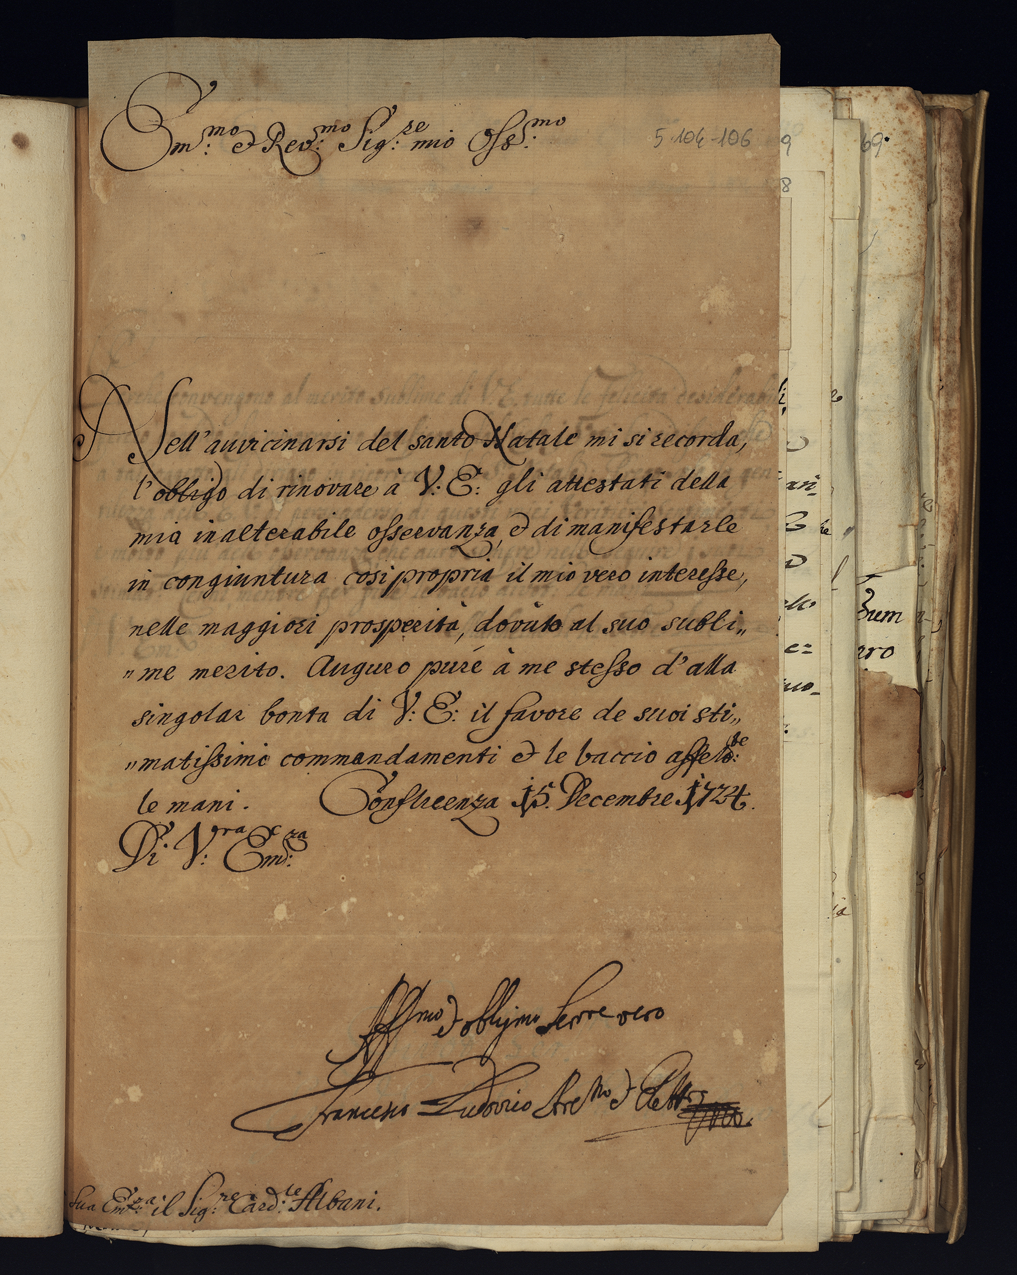 Em:mo & Rev:mo Sig:re mio Oss:mo
5 104-106
69.
Nell'auvicinarsi del santo Natale mi si recorda,
l'obligo di rinovare à V: E: gli attestati della
mia inalterabile osservanza, & di manifestarle
in congiuntura cosi propria il mio vero interesse,
nelle maggiori prosperità, dovuto al suo subli„
„me merito. Auguro puré à me stesso d'alla
singolar bonta di V: E: il favore de suoi sti„
„matissimi commandamenti & le baccio
le mani. Confluenza 15. Decembre 1724.
Di V:ra Em:za
Aff:mo & oblig:mo Serre vero
Francesco Ludovico & Elett
Sua Em:za il Sig:re Card:le Albani.